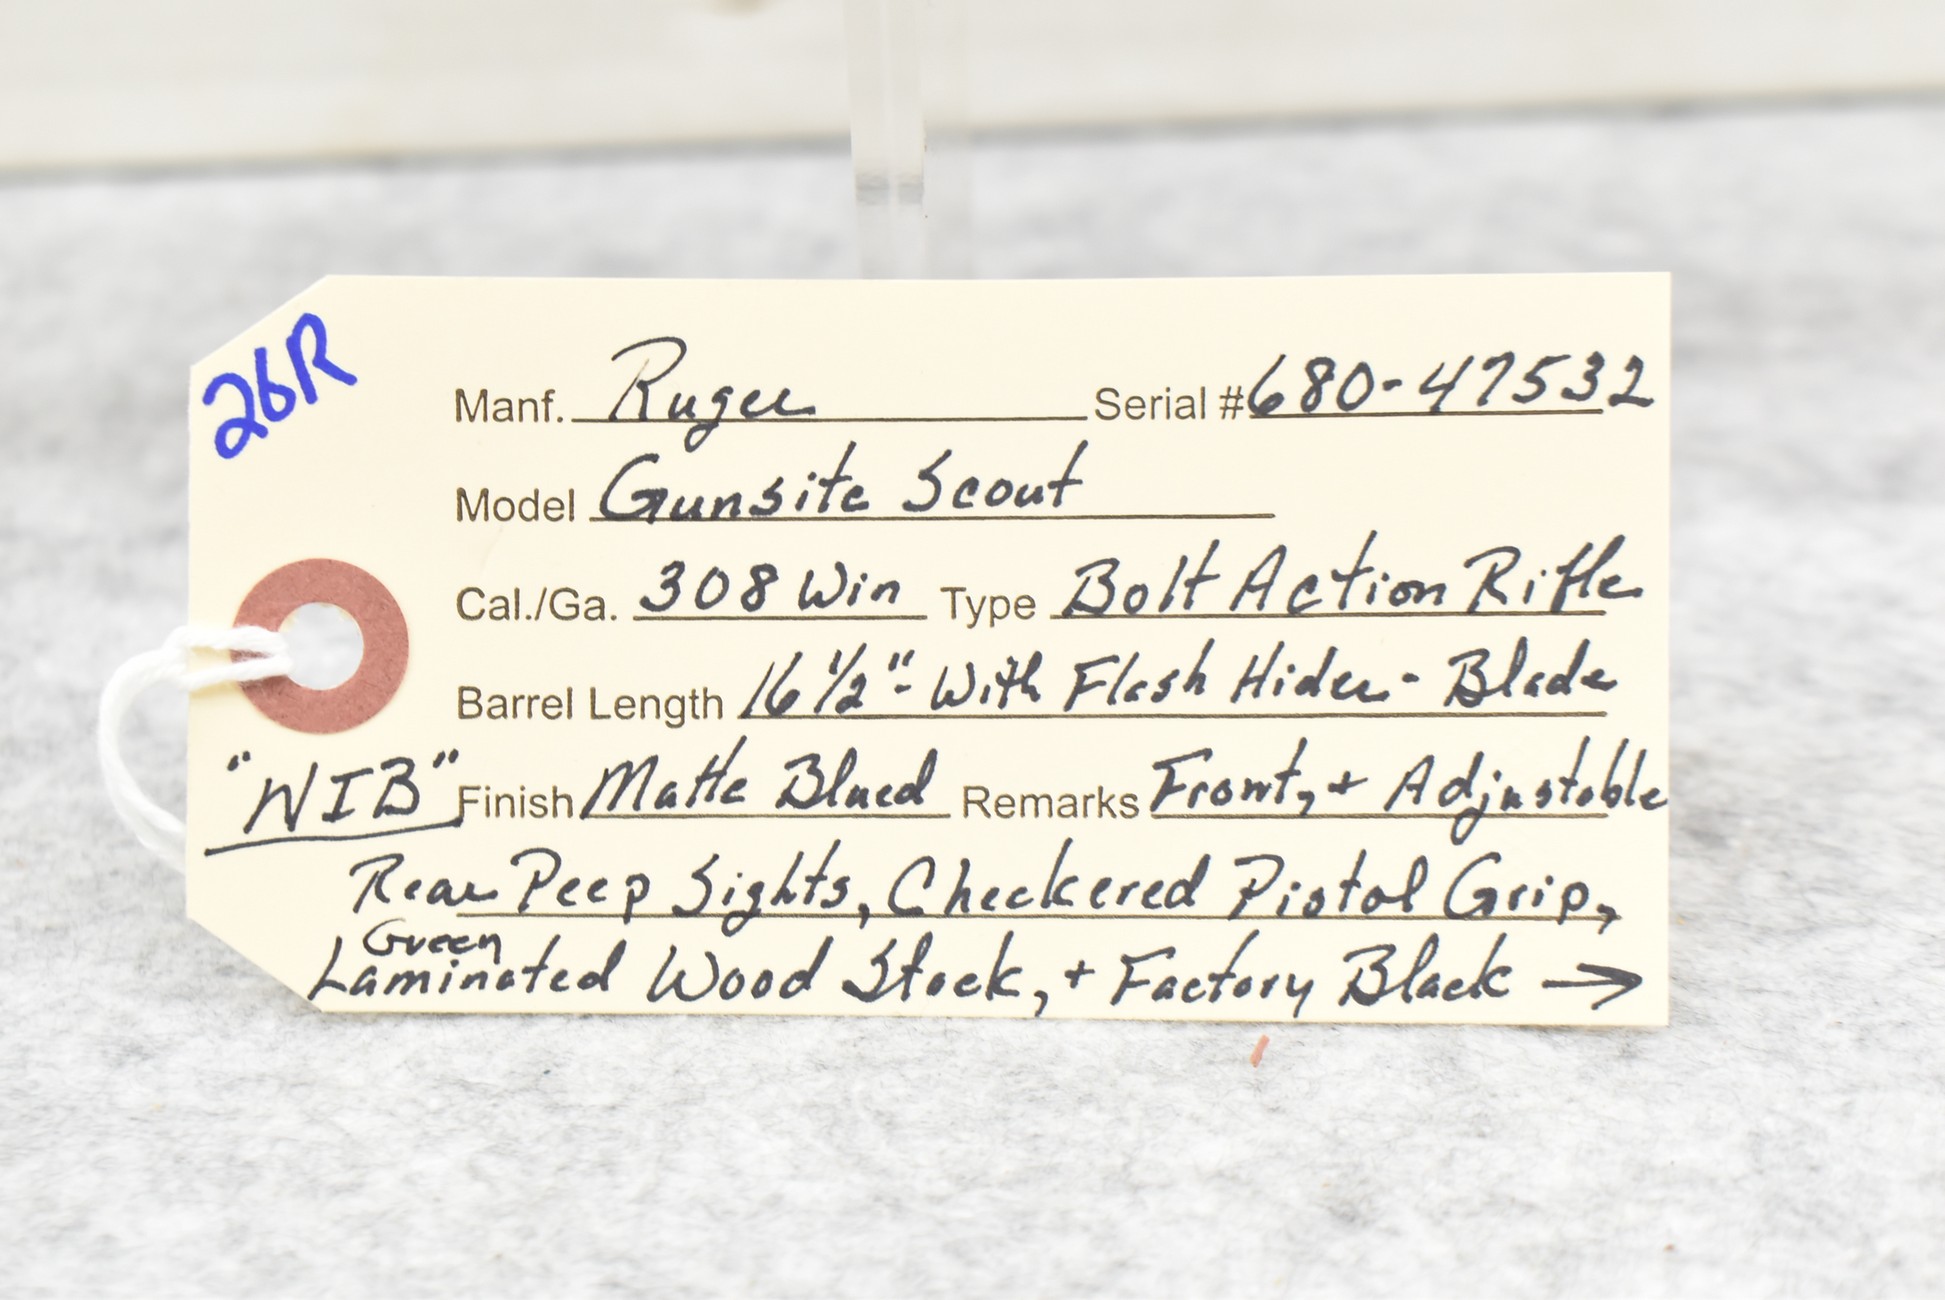 26R
Manf. Ruger Serial # 680-47532
Model Gunsite Scout
Cal./Ga. 308 Win Type Bolt Action Rifle
Barrel Length 16 1/2" - With Flash Hider - Blade
"NIB" Finish Matte Blued Remarks Front, + Adjustable
Rear Peep Sights, Checkered Pistol Grip,
Green
Laminated Wood Stock, + Factory Black →